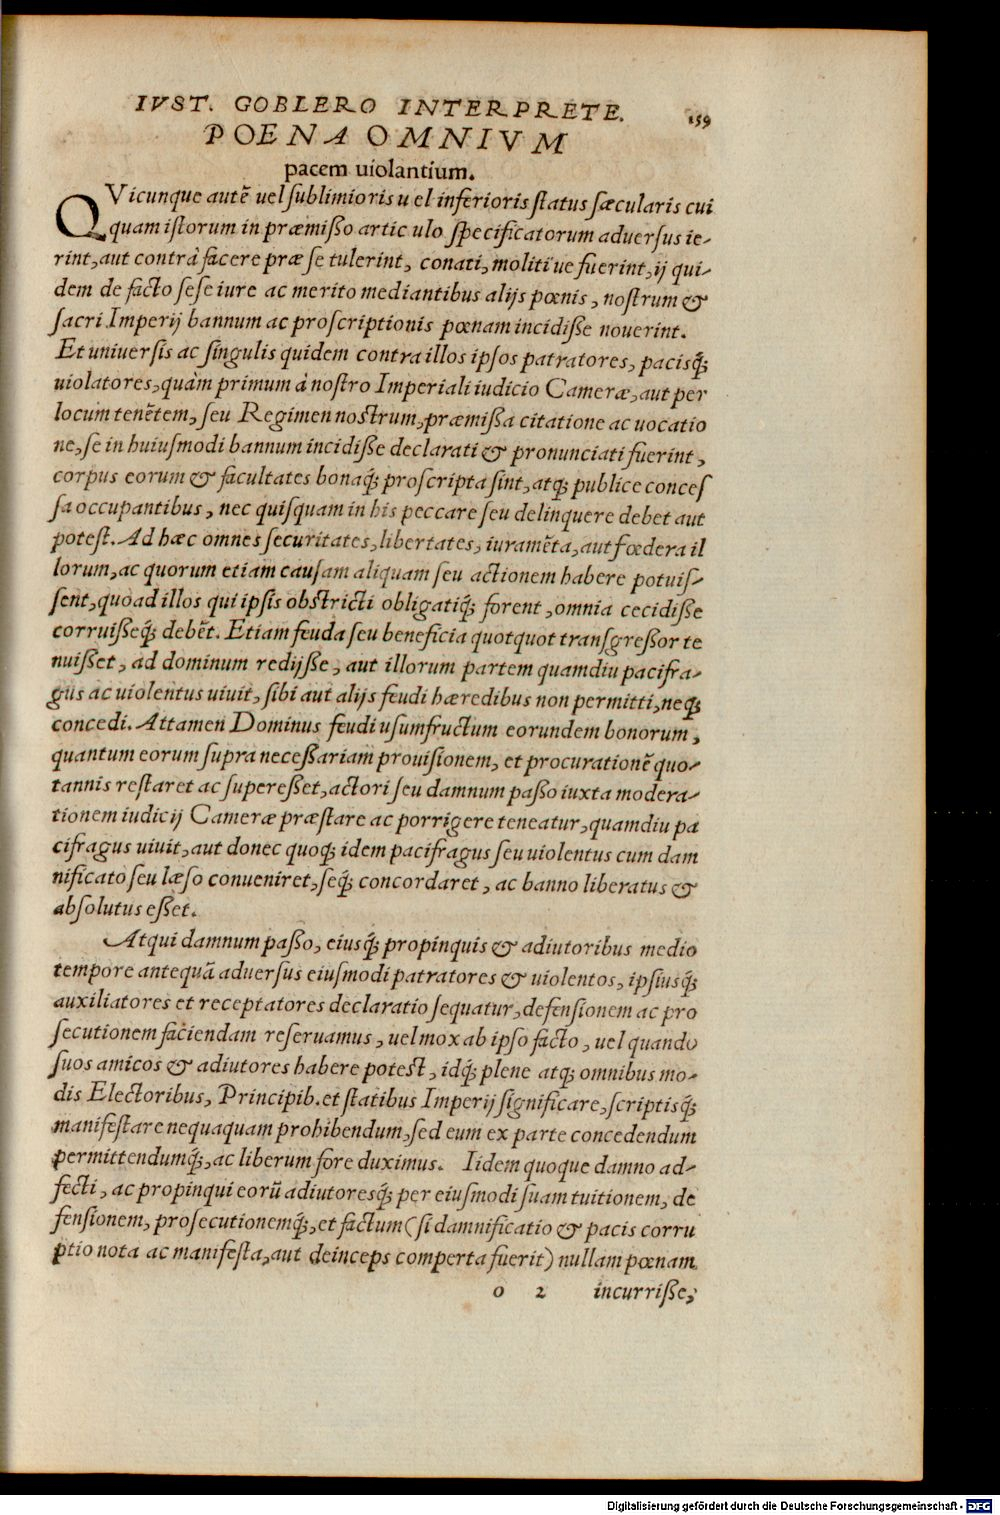 IVST. GOBLERO INTERPRETE. 159
POENA OMNIVM
pacem uiolantium.
QVicunque autẽ uel sublimioris u el inferioris status sæcularis cui
quam istorum in præmißo artic ulo specificatorum aduersus ie-
rint, aut contrà facere præ se tulerint, conati, moliti'ue fuerint, ij qui-
dem de facto sese iure ac merito mediantibus alijs pœnis, nostrum &
sacri Imperij bannum ac proscriptionis pœnam incidiße nouerint.
Et uniuersis ac singulis quidem contra illos ipsos patratores, pacisq́;
uiolatores, quàm primum à nostro Imperiali iudicio Cameræ, aut per
locum tenẽtem, seu Regimen nostrum, præmißa citatione ac uocatio
ne, se in huiusmodi bannum incidiße declarati & pronunciati fuerint,
corpus eorum & facultates bonaq́; proscripta sint, atq; publice conces
sa occupantibus, nec quisquam in his peccare seu delinquere debet aut
potest. Ad hæc omnes securitates, libertates, iuramẽta, aut fœdera il
lorum, ac quorum etiam causam aliquam seu actionem habere potuis-
sent, quoad illos qui ipsis obstricti obligatiq́; forent, omnia cecidiße
corruißeq́; debẽt. Etiam feuda seu beneficia quotquot transgreßor te
nuißet, ad dominum redijße, aut illorum partem quamdiu pacifra-
gus ac uiolentus uiuit, sibi aut alijs feudi hæredibus non permitti, neq;
concedi. Attamen Dominus feudi usumfructum eorundem bonorum,
quantum eorum supra neceßariam prouisionem, et procurationẽ quo-
tannis restaret ac supereßet, actori seu damnum paßo iuxta modera-
tionem iudicij Cameræ præstare ac porrigere teneatur, quamdiu pa
cifragus uiuit, aut donec quoq; idem pacifragus seu uiolentus cum dam
nificato seu læso conueniret, seq́; concordaret, ac banno liberatus &
absolutus eßet.
Atqui damnum paßo, eiusq́; propinquis & adiutoribus medio
tempore antequã aduersus eiusmodi patratores & uiolentos, ipsiusq́;
auxiliatores et receptatores declaratio sequatur, defensionem ac pro
secutionem faciendam reseruamus, uel mox ab ipso facto, uel quando
suos amicos & adiutores habere potest, idq́; plene atq; omnibus mo-
dis Electoribus, Principib. et statibus Imperij significare, scriptisq́;
manifestare nequaquam prohibendum, sed eum ex parte concedendum
permittendumq́;, ac liberum fore duximus. Iidem quoque damno ad-
fecti, ac propinqui eorũ adiutoresq́; per eiusmodi suam tuitionem, de
fensionem, prosecutionemq́;, et factum (si damnificatio & pacis corru
ptio nota ac manifesta, aut deinceps comperta fuerit) nullam pœnam
o 2 incurriße;
Digitalisierung gefördert durch die Deutsche Forschungsgemeinschaft - DFG